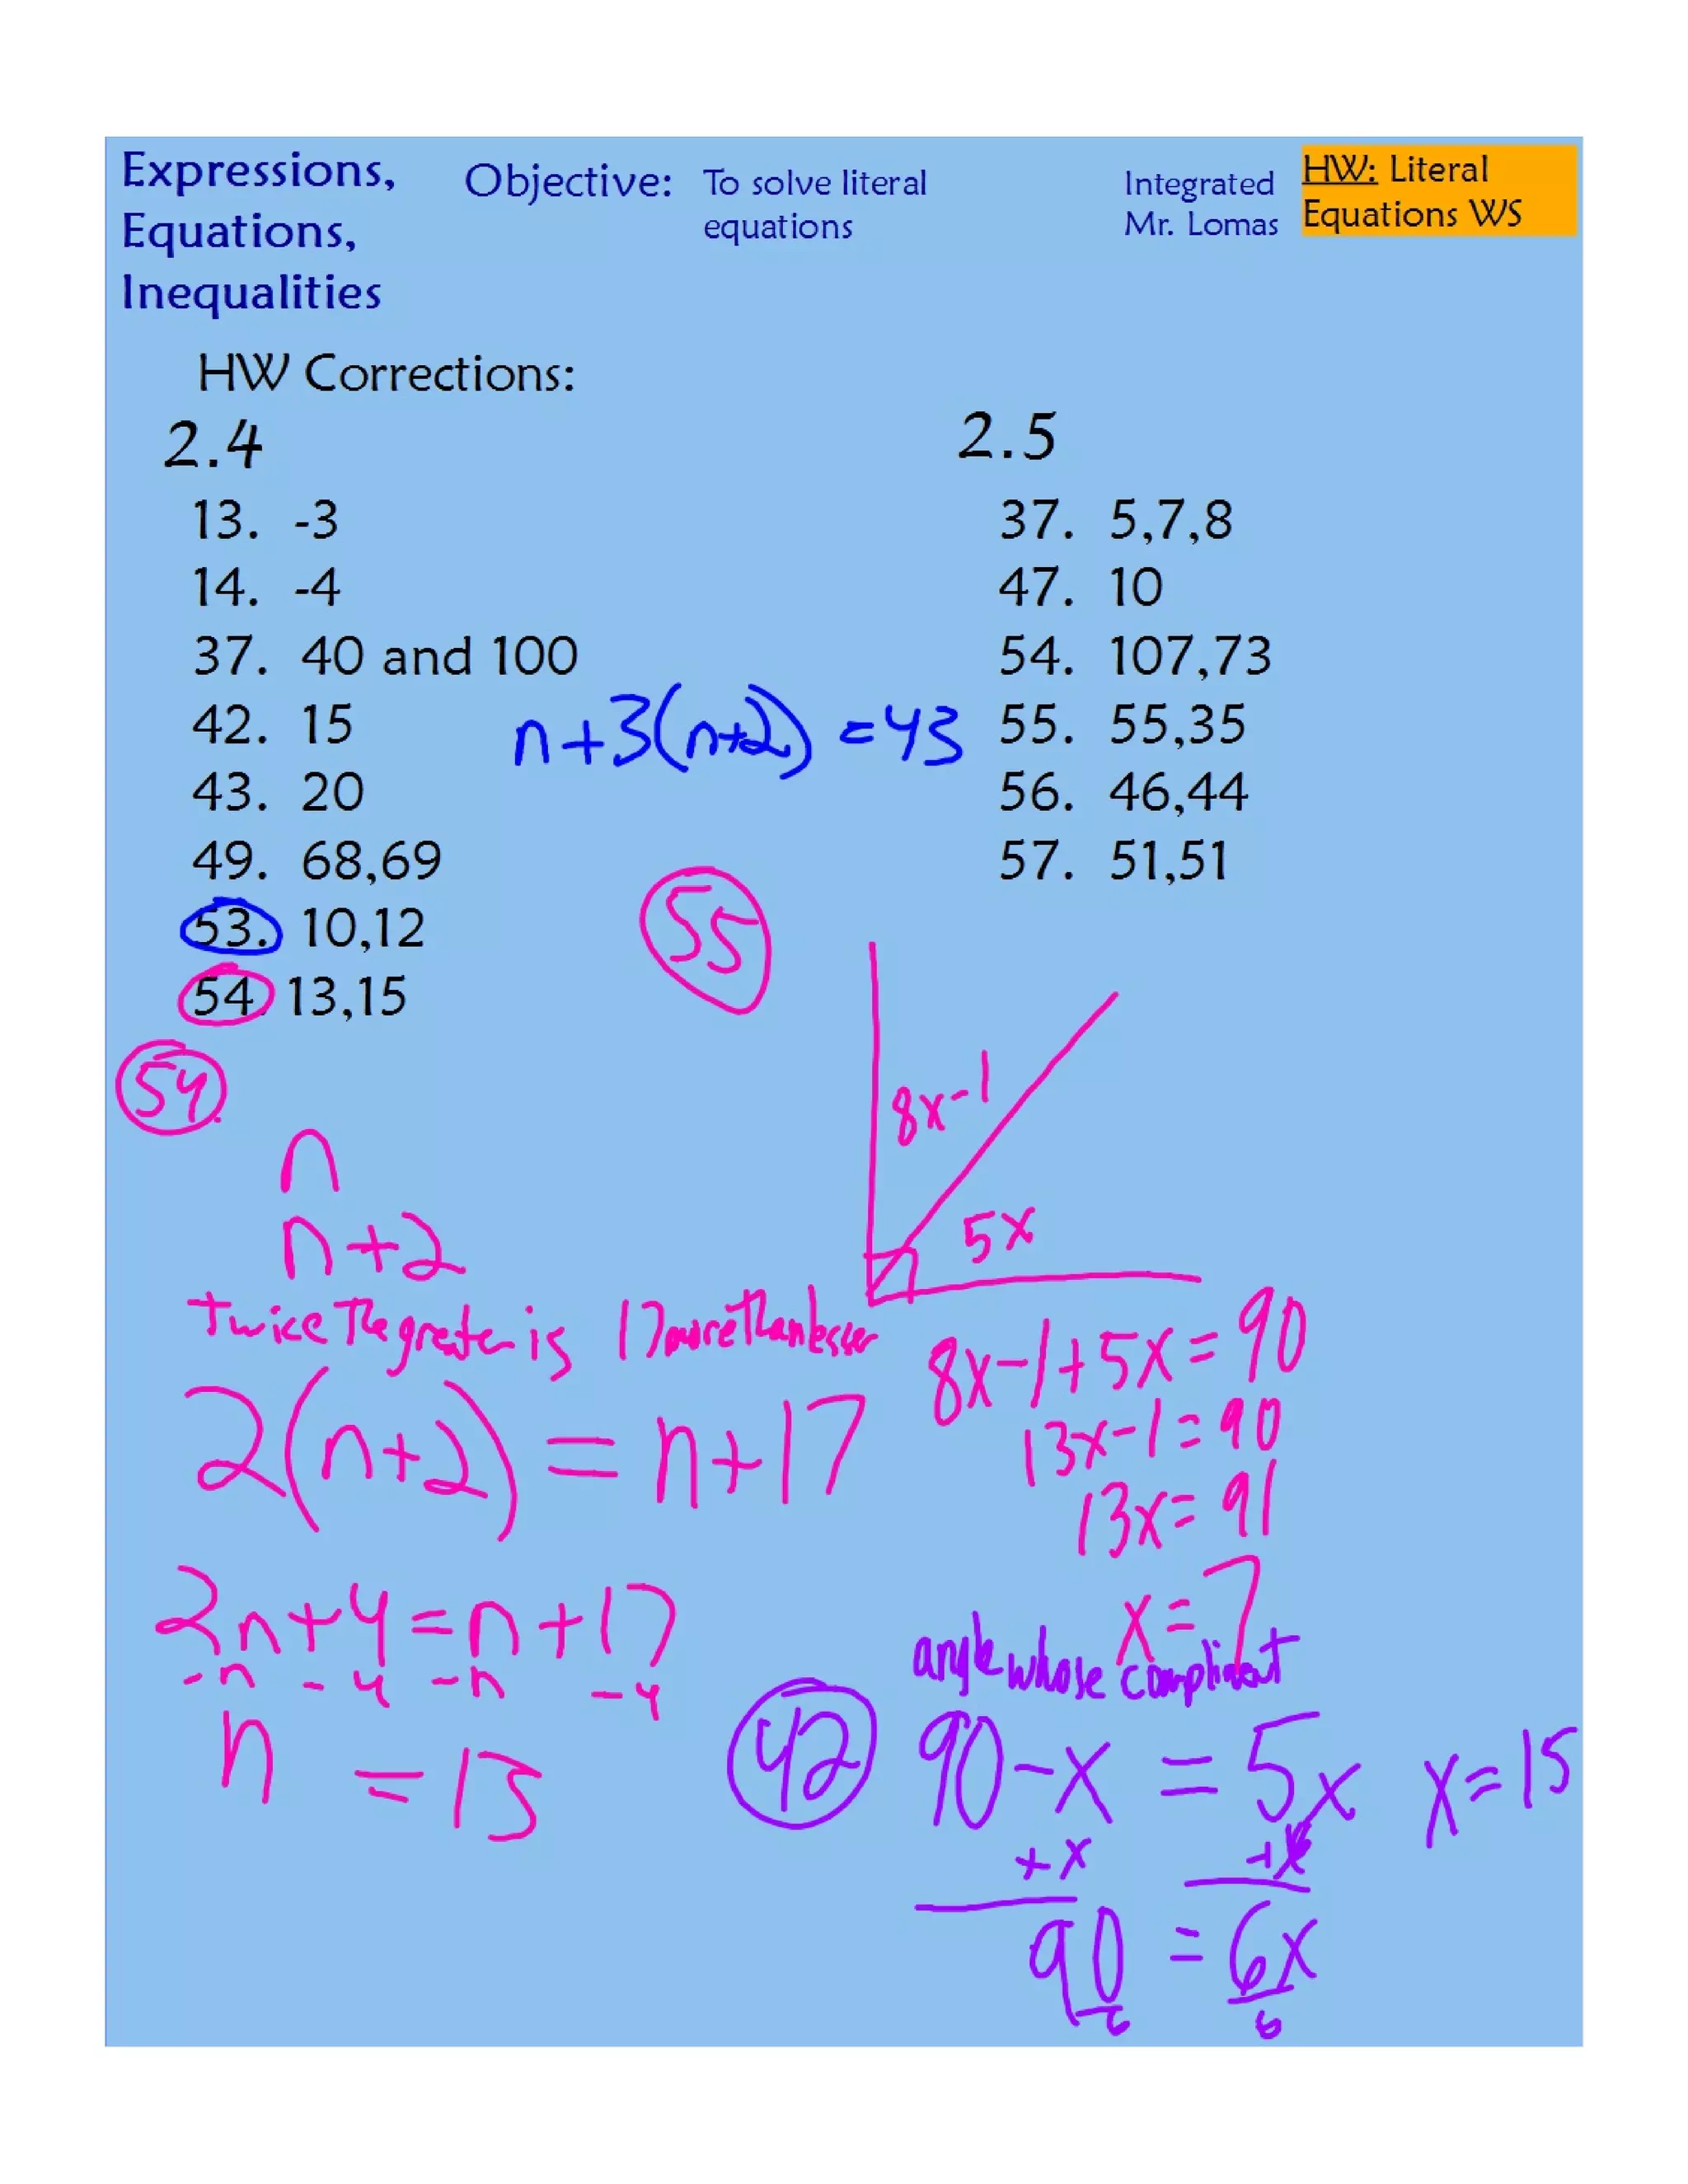 Expressions,
Equations,
Inequalities
Objective: To solve literal
equations
Integrated
Mr. Lomas
HW: Literal
Equations WS
HW Corrections:
2.4
13. -3
14. -4
37. 40 and 100
42. 15
43. 20
49. 68,69
53. 10,12
54. 13,15
n+3(n+2) =43
2.5
37. 5,7,8
47. 10
54. 107,73
55. 55,35
56. 46,44
57. 51,51
54.
n
n+2
twice the greater is 17 more than lesser
2(n+2) = n+17
2n+4=n+17
-n -4 -n -4
n = 13
55
8x-1
5x
8x-1+5x=90
13x-1=90
13x=91
x=7
42
angle whose compliment
90-x = 5x x=15
+x +x
90 = 6x
6 6